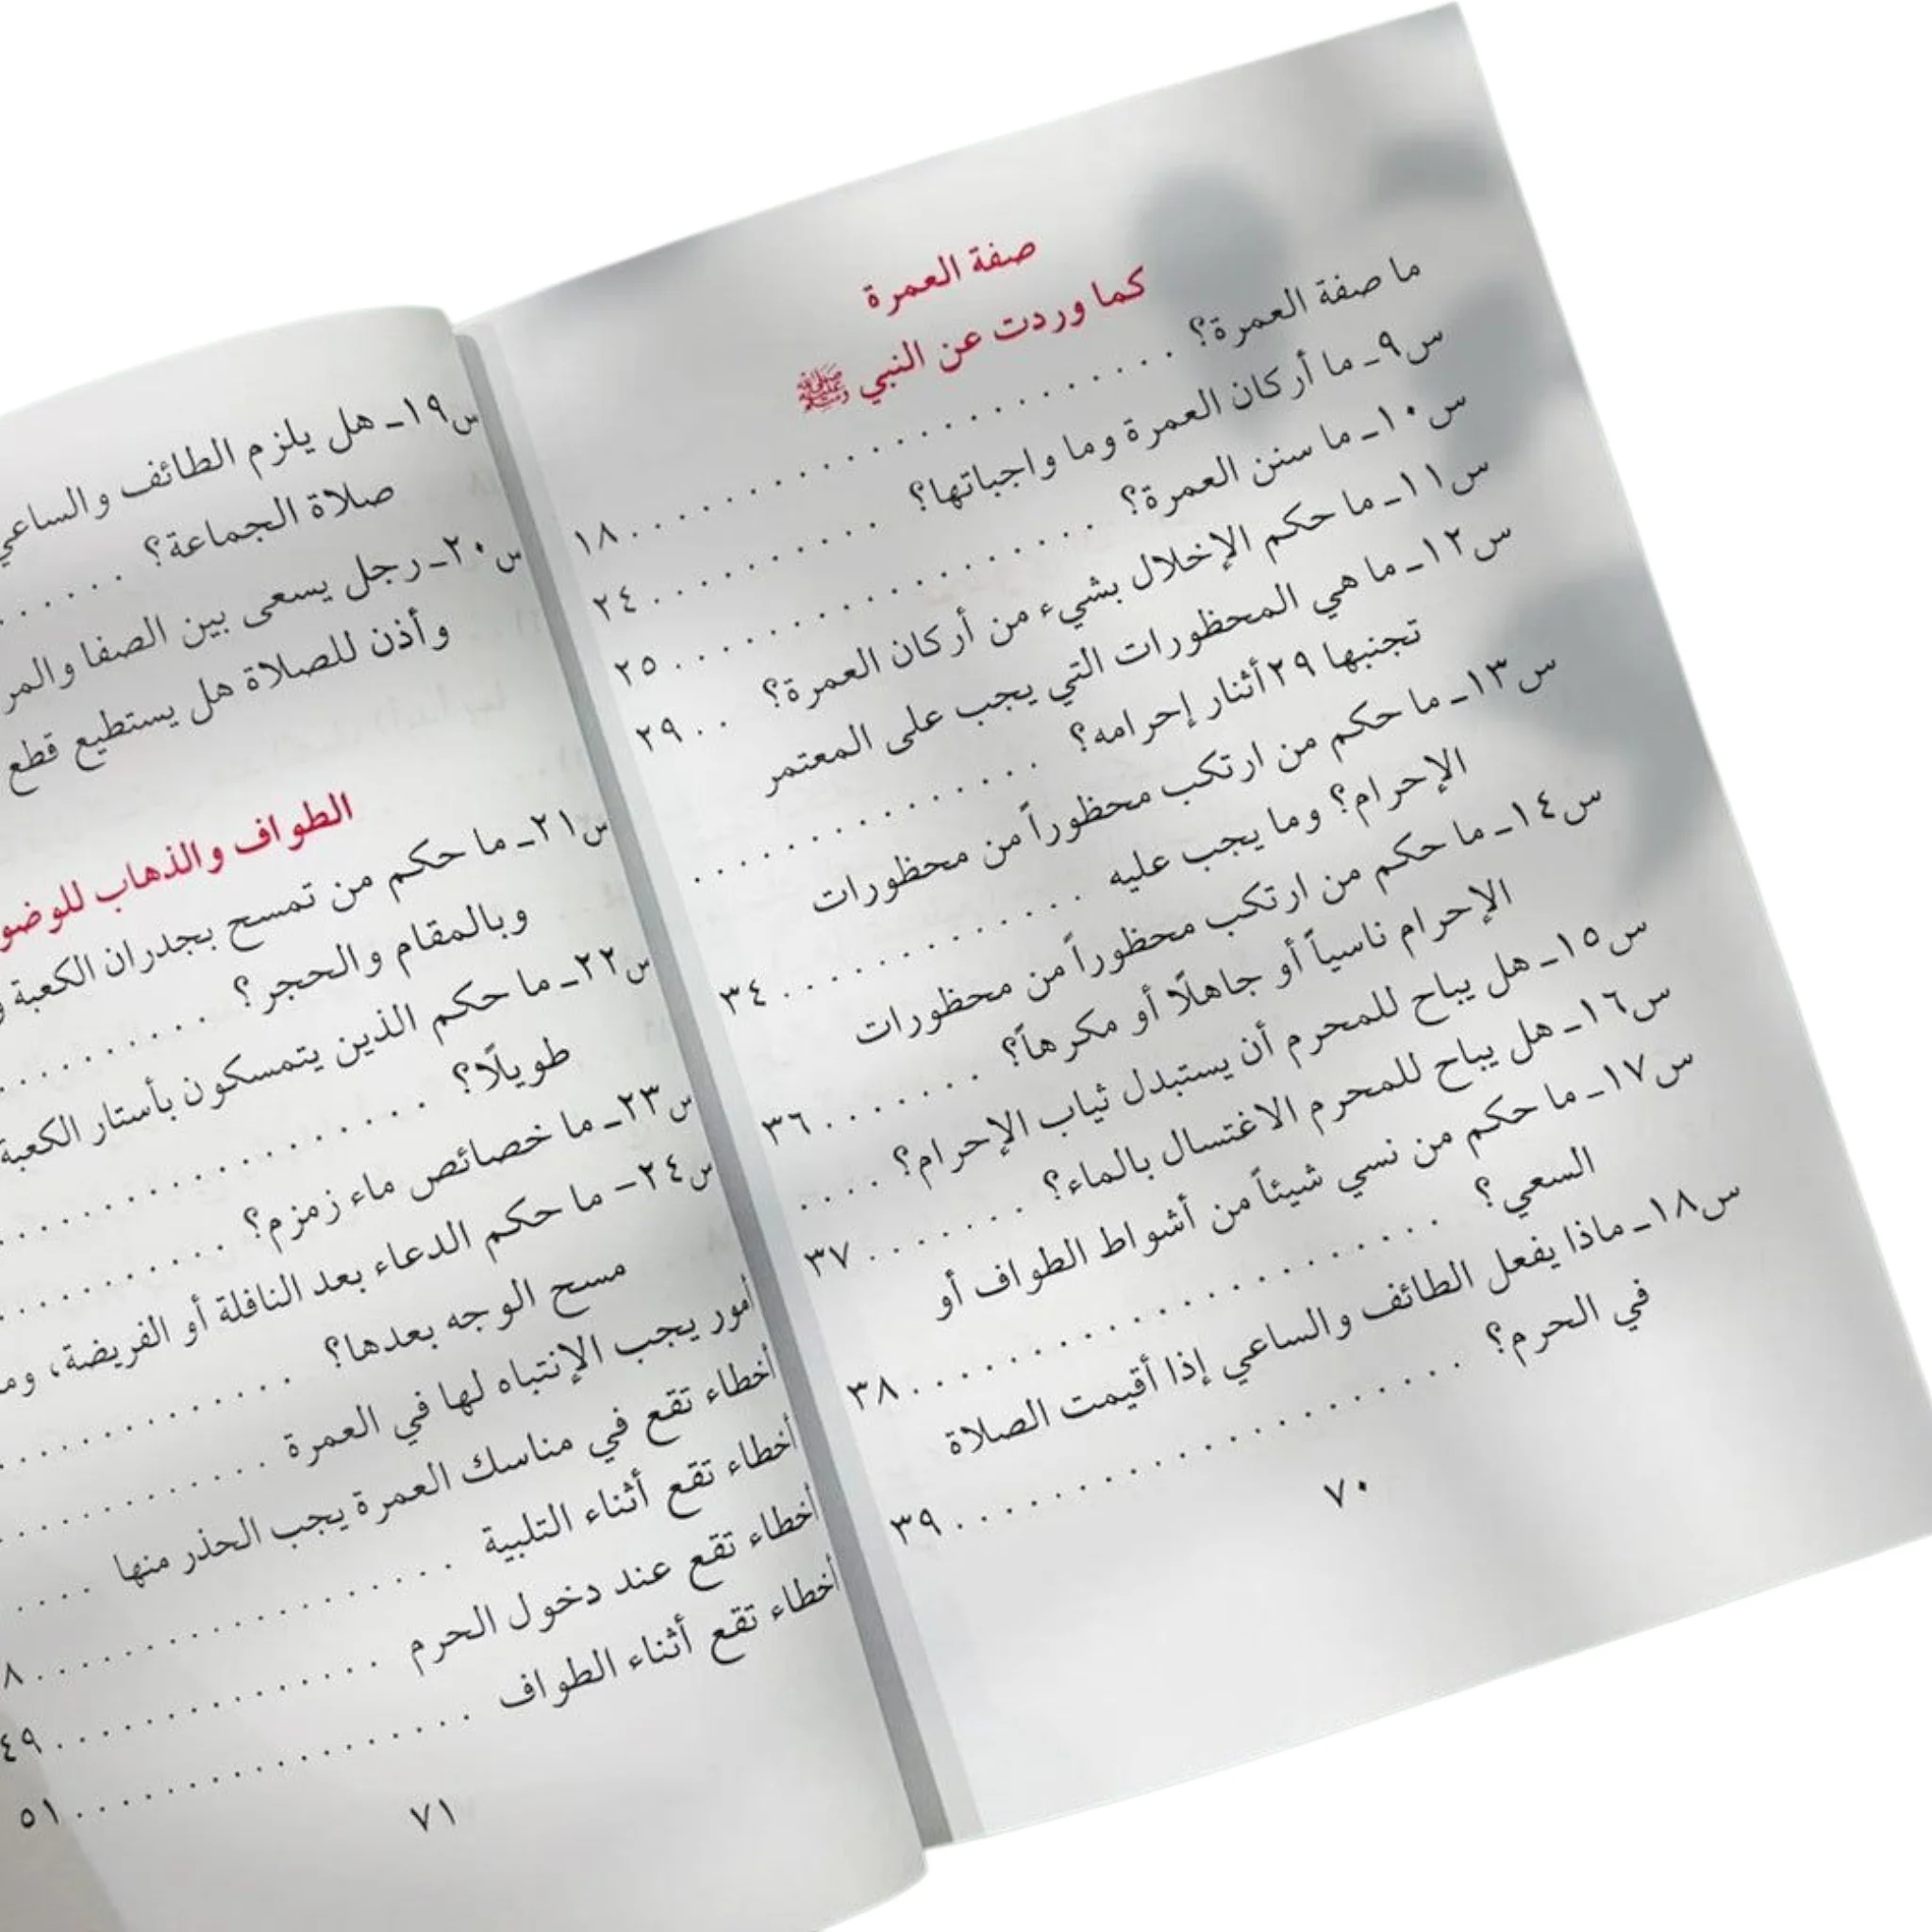 صفة العمرة
كما وردت عن النبي ﷺ
ما صفة العمرة؟ . . . . . . . . . . . . . . . . . . . . . . . ١٨
س٩ـ ما أركان العمرة وما واجباتها؟ . . . . . . . . . . ٢٤
س١٠ـ ما سنن العمرة؟ . . . . . . . . . . . . . . . . . . . ٢٥
س١١ـ ما حكم الإخلال بشيء من أركان العمرة؟ . . ٢٩
س١٢ـ ما هي المحظورات التي يجب على المعتمر
تجنبها ٢٩ أثنار إحرامه؟ . . . . . . . . . . . . . . .
س١٣ـ ما حكم من ارتكب محظوراً من محظورات
الإحرام؟ وما يجب عليه . . . . . . . . . . . . . ٣٤
س١٤ـ ما حكم من ارتكب محظوراً من محظورات
الإحرام ناسياً أو جاهلًا أو مكرهاً؟ . . . . . . . ٣٦
س١٥ـ هل يباح للمحرم أن يستبدل ثياب الإحرام؟ . . . .
س١٦ـ هل يباح للمحرم الاغتسال بالماء؟ . . . . . . . ٣٧
س١٧ـ ما حكم من نسي شيئاً من أشواط الطواف أو
السعي؟ . . . . . . . . . . . . . . . . . . . . . . . ٣٨
س١٨ـ ماذا يفعل الطائف والساعي إذا أقيمت الصلاة
في الحرم؟ . . . . . . . . . . . . . . . . . . . . . . ٣٩
٧٠
س١٩ـ هل يلزم الطائف والساعي
صلاة الجماعة؟ . . . . . .
س٢٠ـ رجل يسعى بين الصفا والمر
وأذن للصلاة هل يستطيع قطع
الطواف والذهاب للوضو
س٢١ـ ما حكم من تمسح بجدران الكعبة
وبالمقام والحجر؟ . . . . . . . . . .
س٢٢ـ ما حكم الذين يتمسكون بأستار الكعبة
طويلًا؟ . . . . . . . . . . . . . . . . . .
س٢٣ـ ما خصائص ماء زمزم؟ . . . . . . . . . .
س٢٤- ما حكم الدعاء بعد النافلة أو الفريضة، وما
مسح الوجه بعدها؟ . . . . . . . . . . . . . .
أمور يجب الإنتباه لها في العمرة . . . . . . . . . . . .
أخطاء تقع في مناسك العمرة يجب الحذر منها . . . .
أخطاء تقع أثناء التلبية . . . . . . . . . . . . . . . . . . ٨
أخطاء تقع عند دخول الحرم . . . . . . . . . . . . . . ٤٩
أخطاء تقع أثناء الطواف . . . . . . . . . . . . . . . . . ٥١
٧١